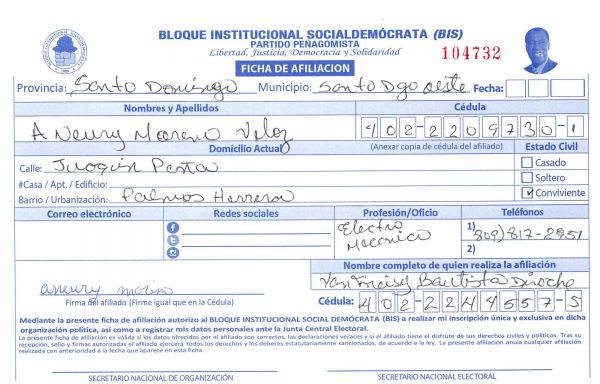 BLOQUE INSTITUCIONAL SOCIALDEMÓCRATA (BIS)
PARTIDO PEÑAGOMISTA
Libertad, Justicia, Democracia y Solidaridad
104732
FICHA DE AFILIACION
Provincia: Santo Domingo Municipio: Santo Dgo oeste Fecha:
Nombres y Apellidos Cédula
Aneury Moreno Veloz 402-2209730-1
Domicilio Actual (Anexar copia de cédula del afiliado) Estado Civil
Calle: Juaquin Casado
#Casa / Apt. / Edificio: Soltero
Barrio / Urbanización: Palmas Herrera Conviviente
Correo electrónico Redes sociales Profesión/Oficio Teléfonos
Electro Mecanico 1) 809) 817-2951
2)
Nombre completo de quien realiza la afiliación
Bautista
aneury moreno
Firma del afiliado (Firme igual que en la Cédula) Cédula: 402-2244557-5
Mediante la presente ficha de afiliacion autorizo al BLOQUE INSTITUCIONAL SOCIAL DEMÓCRATA (BIS) a realizar mi inscripción única y exclusiva en dicha
organización política, así como a registrar mis datos personales ante la Junta Central Electoral.
La presente ficha de afiliación es válida si los datos ofrecidos por el afiliado son correctos, las declaraciones veraces y si el afiliado tiene el disfrute de sus derechos civiles y políticos. Tras su
recepción, sello y firmas autorizadas el afiliado ejercerá todos los derechos y los deberes estatutariamente sancionados, de acuerdo a la ley. La presente afiliación anula cualquier afiliación
realizada con anterioridad a la fecha que aparece en esta ficha.
SECRETARIO NACIONAL DE ORGANIZACIÓN SECRETARIO NACIONAL ELECTORAL